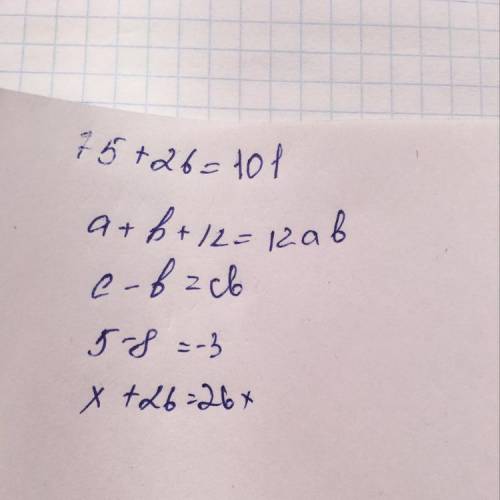 75+26=101
a+b+12=12ab
c-b=cb
5-8=-3
x+26=26x